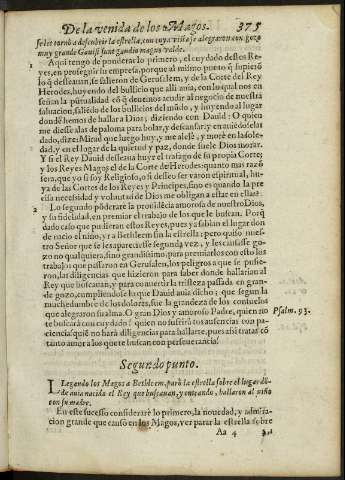 De la venida de los Magos. 375
se les tornò a descubrir la estrella, con cuya vista se alegraron con gozo
muy grande Gauisi sunt gaudio magno valde.
1 Aqui tengo de ponderar lo primero, el cuydado destos Re-
yes, en proseguir su empresa, porque al mismo punto q̃ supierõ
lo q̃ desseauan se salieron de Gerusalem, y de la Corte del Rey
Herodes, huyendo del bullicio que alli auia, con lo qual nos en
señan la puntualidad cõ q̃ deuemos acudir al negocio de nuestra
saluacion, saliẽdo de los bullicios del mũdo, y huyendo al lugar
donde hemos de hallar a Dios; diziendo con Dauid: O quien
me diesse alas de paloma para bolar, y descansar: y en auiẽdoselas
dado, dize: Mirad que luego huy, y me alexè, y morè en la sole-
dad, y en el lugar de la quietud y paz, donde suele Dios morar.
Y si el Rey Dauid desseaua huyr el trafago de su propia Corte,
y los Reyes Magos el de la Corte de Herodes: quanto mas razõ
sera, que yo si soy Religioso, o si desseo ser varon espiritual, hu-
ya de las Cortes de los Reyes y Principes, sino es quando la pre
cisa necessidad y voluntad de Dios me obligan a estar en ellas:
2 Lo segundo põderare la prouidẽcia amorosa de nuestro Dios,
y su fidelidad, en premiar el trabajo de los que le buscan. Porq̃
dado caso que pudieran estos Reyes, pues ya sabian el lugar don
de nacio el niño, yr a Bethleem sin la estrella: pero quiso nues-
tro Señor que se les apareciesse segunda vez, y les causasse go-
zo no qualquiera, sino grandissimo, para premiarlos con esto los
trabajos que passaron en Gerusalem, los peligros a que se pusie-
ron, las diligencias que hizieron para saber donde hallarian al
Rey que buscauan, y para conuertir la tristeza passada en gran-
de gozo, cumpliendose lo que Dauid auia dicho: que segun la
muchedumbre de los dolores, fue la grandeza de los consuelos
que alegraron su alma. O gran Dios y amoroso Padre, quien no Psalm. 93.
te buscarà con cuydado? quien no sufrirà tus ausencias con pa-
ciencia? quiẽ no harà diligencias para hallarte, pues assi tratas cõ
tanto amor a los que te buscan con perseuerancia?
Segundo punto.
LLegando los Magos a Bethleem, parò la estrella sobre el lugar dõ-
de auia nacido el Rey que buscauan, y entrando, hallaron al niño
con su madre.
En este sucesso considerarè lo primero, la nouedad, y admira-
cion grande que causò en los Magos, ver parar la estrella sobre
Aa 4